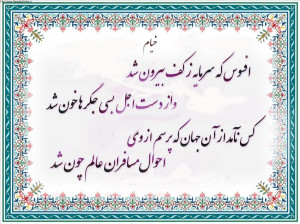 خیام
افسوس که سرمایه ز کف بیرون شد
وز دست اجل بسی جگرها خون شد
کس نآمد از آن جهان که پرسم از وی
احوال مسافران عالم چون شد